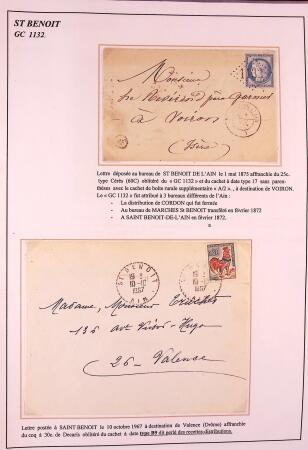 ST BENOIT
GC 1132
Monsieur
à Voiron
(Isère)
Lettre déposée au bureau de ST BENOIT DE L'AIN le 1 mai 1875 affranchie du 25c.
type Cérès (60C) oblitéré du « GC 1132 » et du cachet à date type 17 sans paren-
thèses avec le cachet de boîte rurale supplémentaire « A/2 », à destination de VOIRON.
Le « GC 1132 » fut attribué à 3 bureaux différents de l'Ain :
- La distribution de CORDON qui fut fermée
- Au bureau de MARCHES St BENOIT transféré en février 1872
- A SAINT BENOIT-DE-L'AIN en février 1872.
ST BENOIT
19 H
10-10
1967
AIN
ST BENOIT
19 H
10-10
1967
AIN
0,30
Madame, Monsieur
136 avt Victor-Hugo
26-Valence
Lettre postée à SAINT BENOIT le 10 octobre 1967 à destination de Valence (Drôme) affranchie
du coq à 30c. de Decaris oblitéré du cachet à date type B9 dit perlé des recettes-distributions.